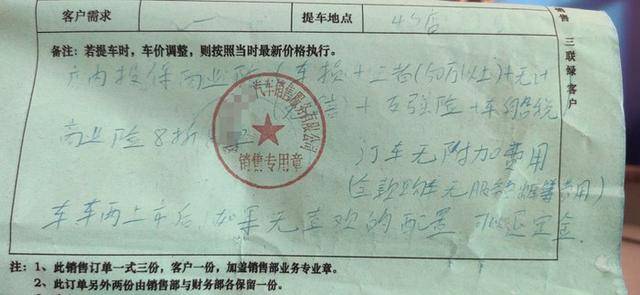 客户需求 提车地点 4S店
备注：若提车时，车价调整，则按照当时最新价格执行。
店内投保商业险（车损+三者(50万以上)+无计
+交强险+车船税
商业险8折
汽车销售服务有限公司
销售专用章
订车无附加费用
(全款购车无服务 等费用)
车车两上市后，如果无喜欢的配置，可退定金.
注：1、此销售订单一式三份，客户一份，加盖销售部业务专业章。
2、此订单另外两份由销售部与财务部各保留一份。
销售 三联绿客户